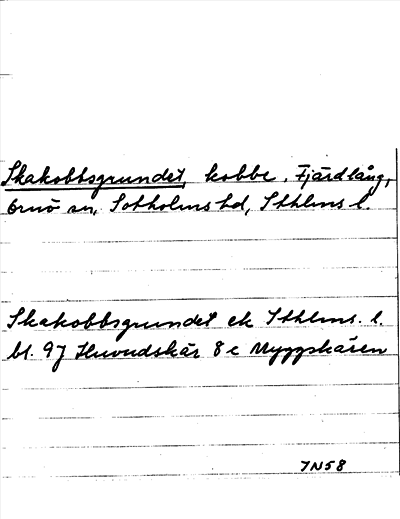 Skakobbsgrundet, kobbe, Fjärdlång,
Ornö sn, Sotholms hd, Sthlms l.
Skakobbsgrundet ek Sthlms. l.
bl. 97 Huvudskär 8 c Myggskären
7N58